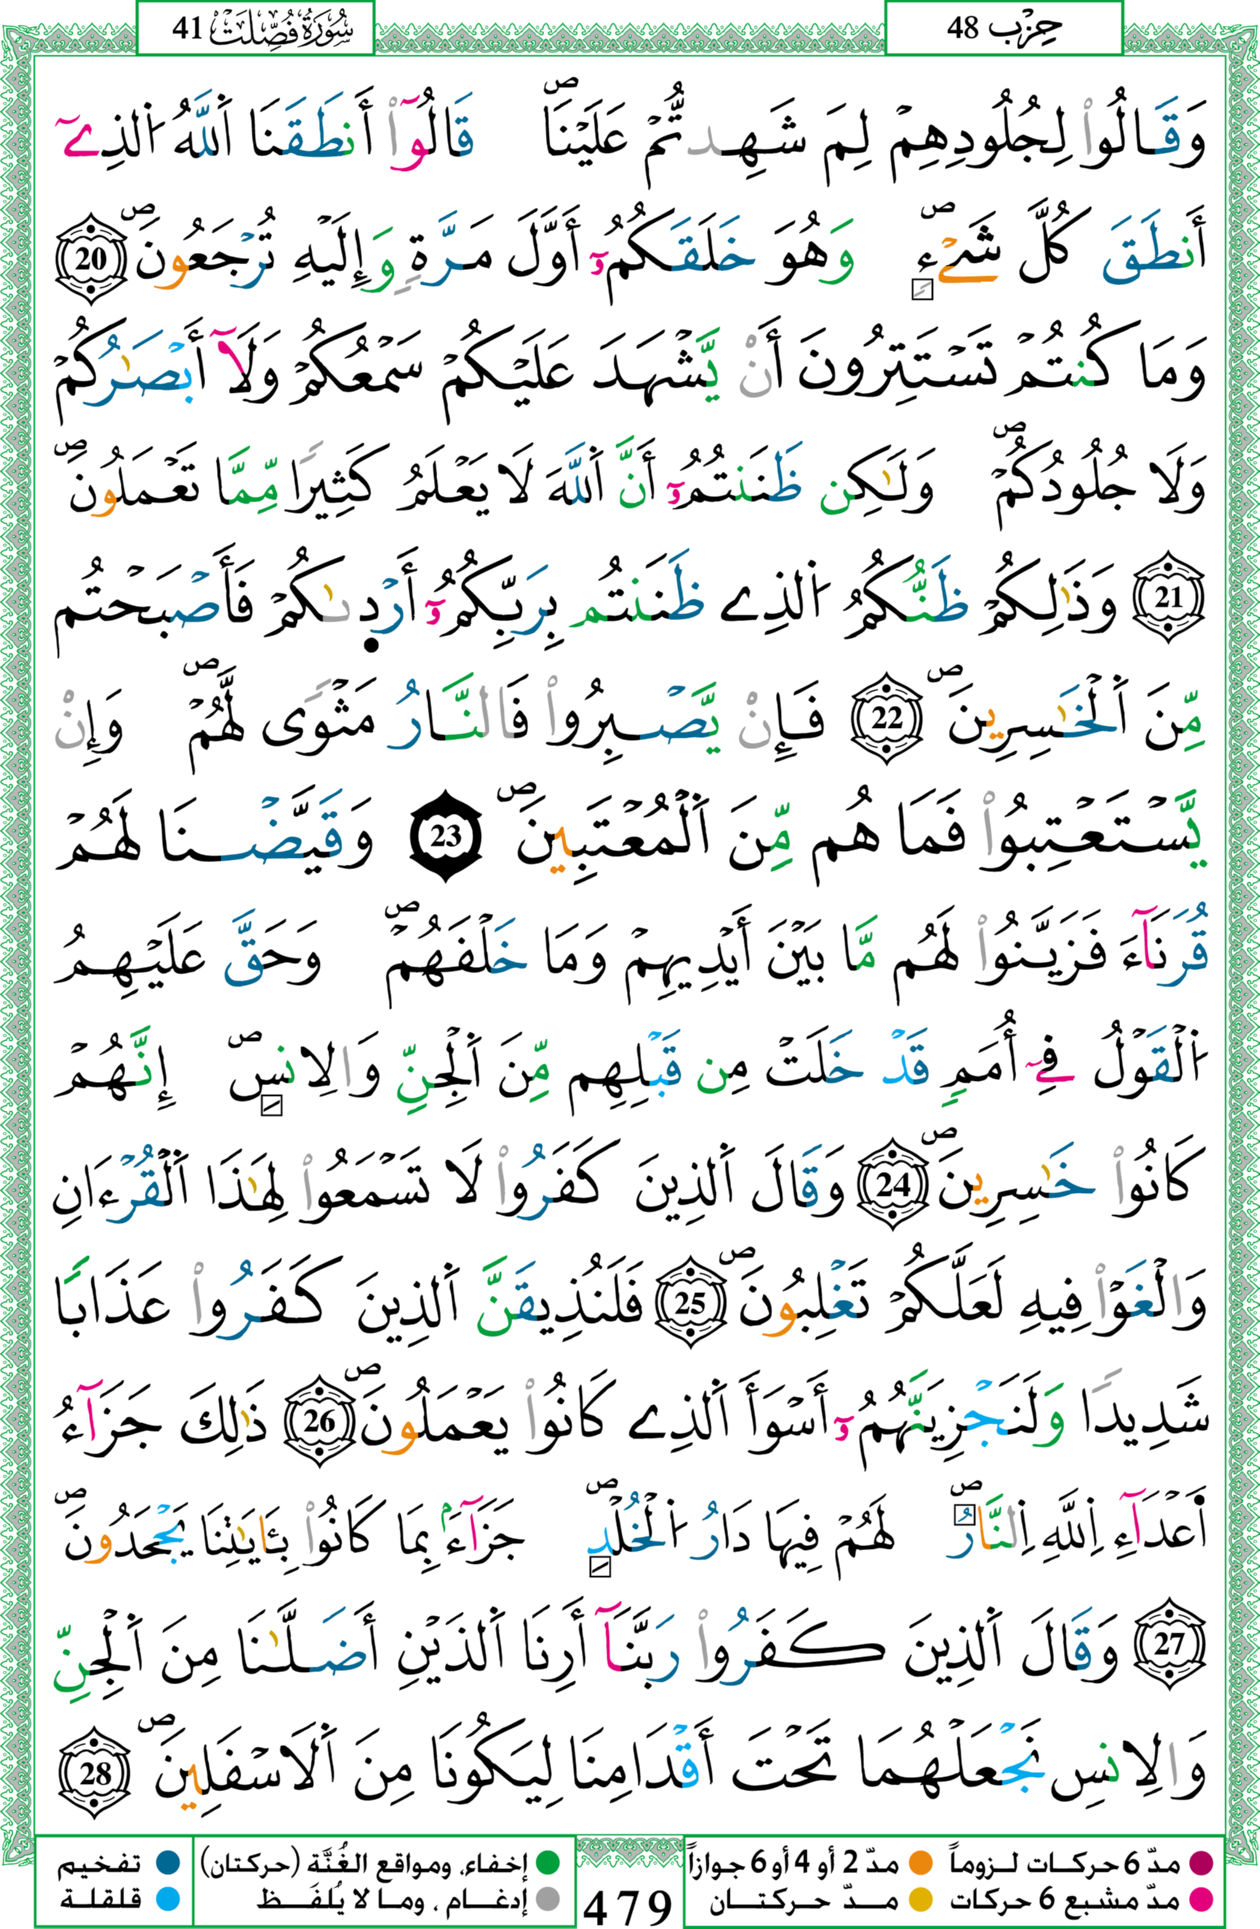 حِزْب 48
سُورَةُ فُصِّلَتْ 41
وَقَالُواْ لِجُلُودِهِمْ لِمَ شَهِدتُّمْ عَلَيْنَاۖ قَالُوٓاْ أَنطَقَنَا اَ۬للَّهُ اُ۬لذِےٓ
أَنطَقَ كُلَّ شَےْءٖۖ وَهُوَ خَلَقَكُمُۥٓ أَوَّلَ مَرَّةٖ وَإِلَيْهِ تُرْجَعُونَۖ 20
وَمَا كُنتُمْ تَسْتَتِرُونَ أَنْ يَّشْهَدَ عَلَيْكُمْ سَمْعُكُمْ وَلَآ أَبْصَٰرُكُمْ
وَلَا جُلُودُكُمْۖ وَلَٰكِن ظَنَنتُمُۥٓ أَنَّ اَ۬للَّهَ لَا يَعْلَمُ كَثِيراٗ مِّمَّا تَعْمَلُونَۖ
21 وَذَٰلِكُمْ ظَنُّكُمُ اُ۬لذِے ظَنَنتُم بِرَبِّكُمُۥٓ أَرْدٜىٰكُمْ فَأَصْبَحْتُم
مِّنَ اَ۬لْخَٰسِرِينَۖ 22 فَإِنْ يَّصْبِرُواْ فَالنَّارُ مَثْويٗ لَّهُمْۖ وَإِنْ
يَّسْتَعْتِبُواْ فَمَا هُم مِّنَ اَ۬لْمُعْتَبِينَۖ 23 وَقَيَّضْنَا لَهُمْ
قُرَنَآءَ فَزَيَّنُواْ لَهُم مَّا بَيْنَ أَيْدِيهِمْ وَمَا خَلْفَهُمْۖ وَحَقَّ عَلَيْهِمُ
اُ۬لْقَوْلُ فِےٓ أُمَمٖ قَدْ خَلَتْ مِن قَبْلِهِم مِّنَ اَ۬لْجِنِّ وَالِانسِۖ إِنَّهُمْ
كَانُواْ خَٰسِرِينَۖ 24 وَقَالَ اَ۬لذِينَ كَفَرُواْ لَا تَسْمَعُواْ لِهَٰذَا اَ۬لْقُرْءَانِ
وَالْغَوْاْ فِيهِ لَعَلَّكُمْ تَغْلِبُونَۖ 25 فَلَنُذِيقَنَّ اَ۬لذِينَ كَفَرُواْ عَذَاباٗ
شَدِيداٗ وَلَنَجْزِيَنَّهُمُۥٓ أَسْوَأَ اَ۬لذِے كَانُواْ يَعْمَلُونَۖ 26 ذَٰلِكَ جَزَآءُ
اَ۬عْدَآءِ اِ۬للَّهِ اِ۬لنَّارُۖ لَهُمْ فِيهَا دَارُ اُ۬لْخُلْدِۖ جَزَآءَۢ بِمَا كَانُواْ بِـَٔايَٰتِنَا يَجْحَدُونَۖ
27 وَقَالَ اَ۬لذِينَ كَفَرُواْ رَبَّنَآ أَرِنَا اَ۬لذَيْنِ أَضَلَّٰنَا مِنَ اَ۬لْجِنِّ
وَالِانسِ نَجْعَلْهُمَا تَحْتَ أَقْدَامِنَا لِيَكُونَا مِنَ اَ۬لَاسْفَلِينَۖ 28
مدّ 6 حركات لـزوماً مدّ 2 أو 4 أو 6 جوازاً
مدّ مشبع 6 حركات مــدّ حركتــان
479
إخفاء، ومواقع الغُنَّة (حركتان) تفخيم
إدغـام ، ومـا لا يُلفَـظ قلقلة